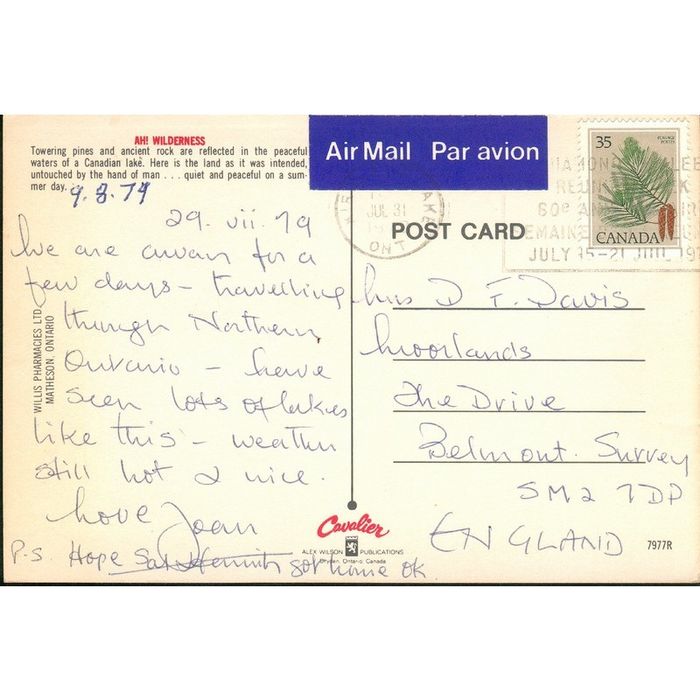 AH! WILDERNESS
Towering pines and ancient rock are reflected in the peaceful
waters of a Canadian lake. Here is the land as it was intended,
untouched by the hand of man . . . quiet and peaceful on a sum-
mer day.
9.8.79
29. vii. 79
We are away for a
few days – travelling
through Northern
Ontario – have
seen lots of lakes
like this – weather
still hot & nice.
Love Joan
P.S. Hope got home ok
WILLIS PHARMACIES LTD.
MATHESON, ONTARIO
Air Mail Par avion
JUL 31
ONT
POST CARD
35
CANADA
JULY 15-21 JUIL 19
Mrs D F. Davis
Moorlands
The Drive
Belmont. Surrey
SM2 7DP
ENGLAND
Cavalier
ALEX WILSON PUBLICATIONS
Dryden, Ontario Canada
7977R